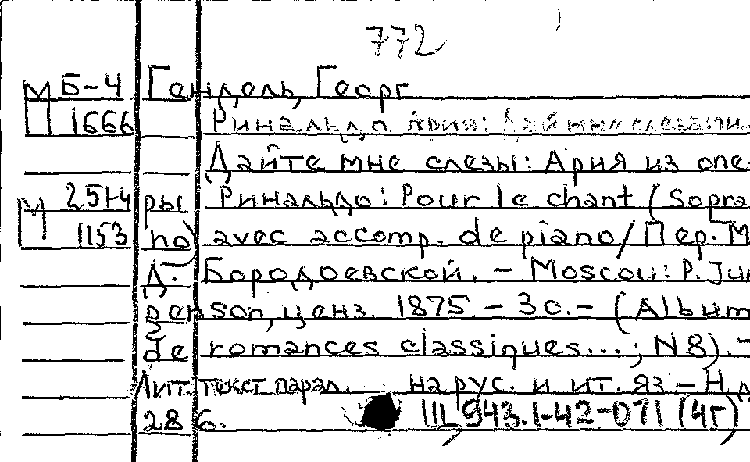 772
М Б-4 Гендель, Георг
1666 Ринальдо Ария:
Дайте мне слезы: Ария из опе-
М 2514 ры Ринальдо: Pour le chant (Sopra
1153 no) avec accomp. de piano/ Пер. М
Д. Бородоевской. – Moscou: P. Jur
genson, ценз. 1875. – 3с. – (Album
de romances classiques...; N 8). –
Лит. текст парал. на рус. и ит. яз – Н.д
286. Ш 943.1-42-071 (4Г)